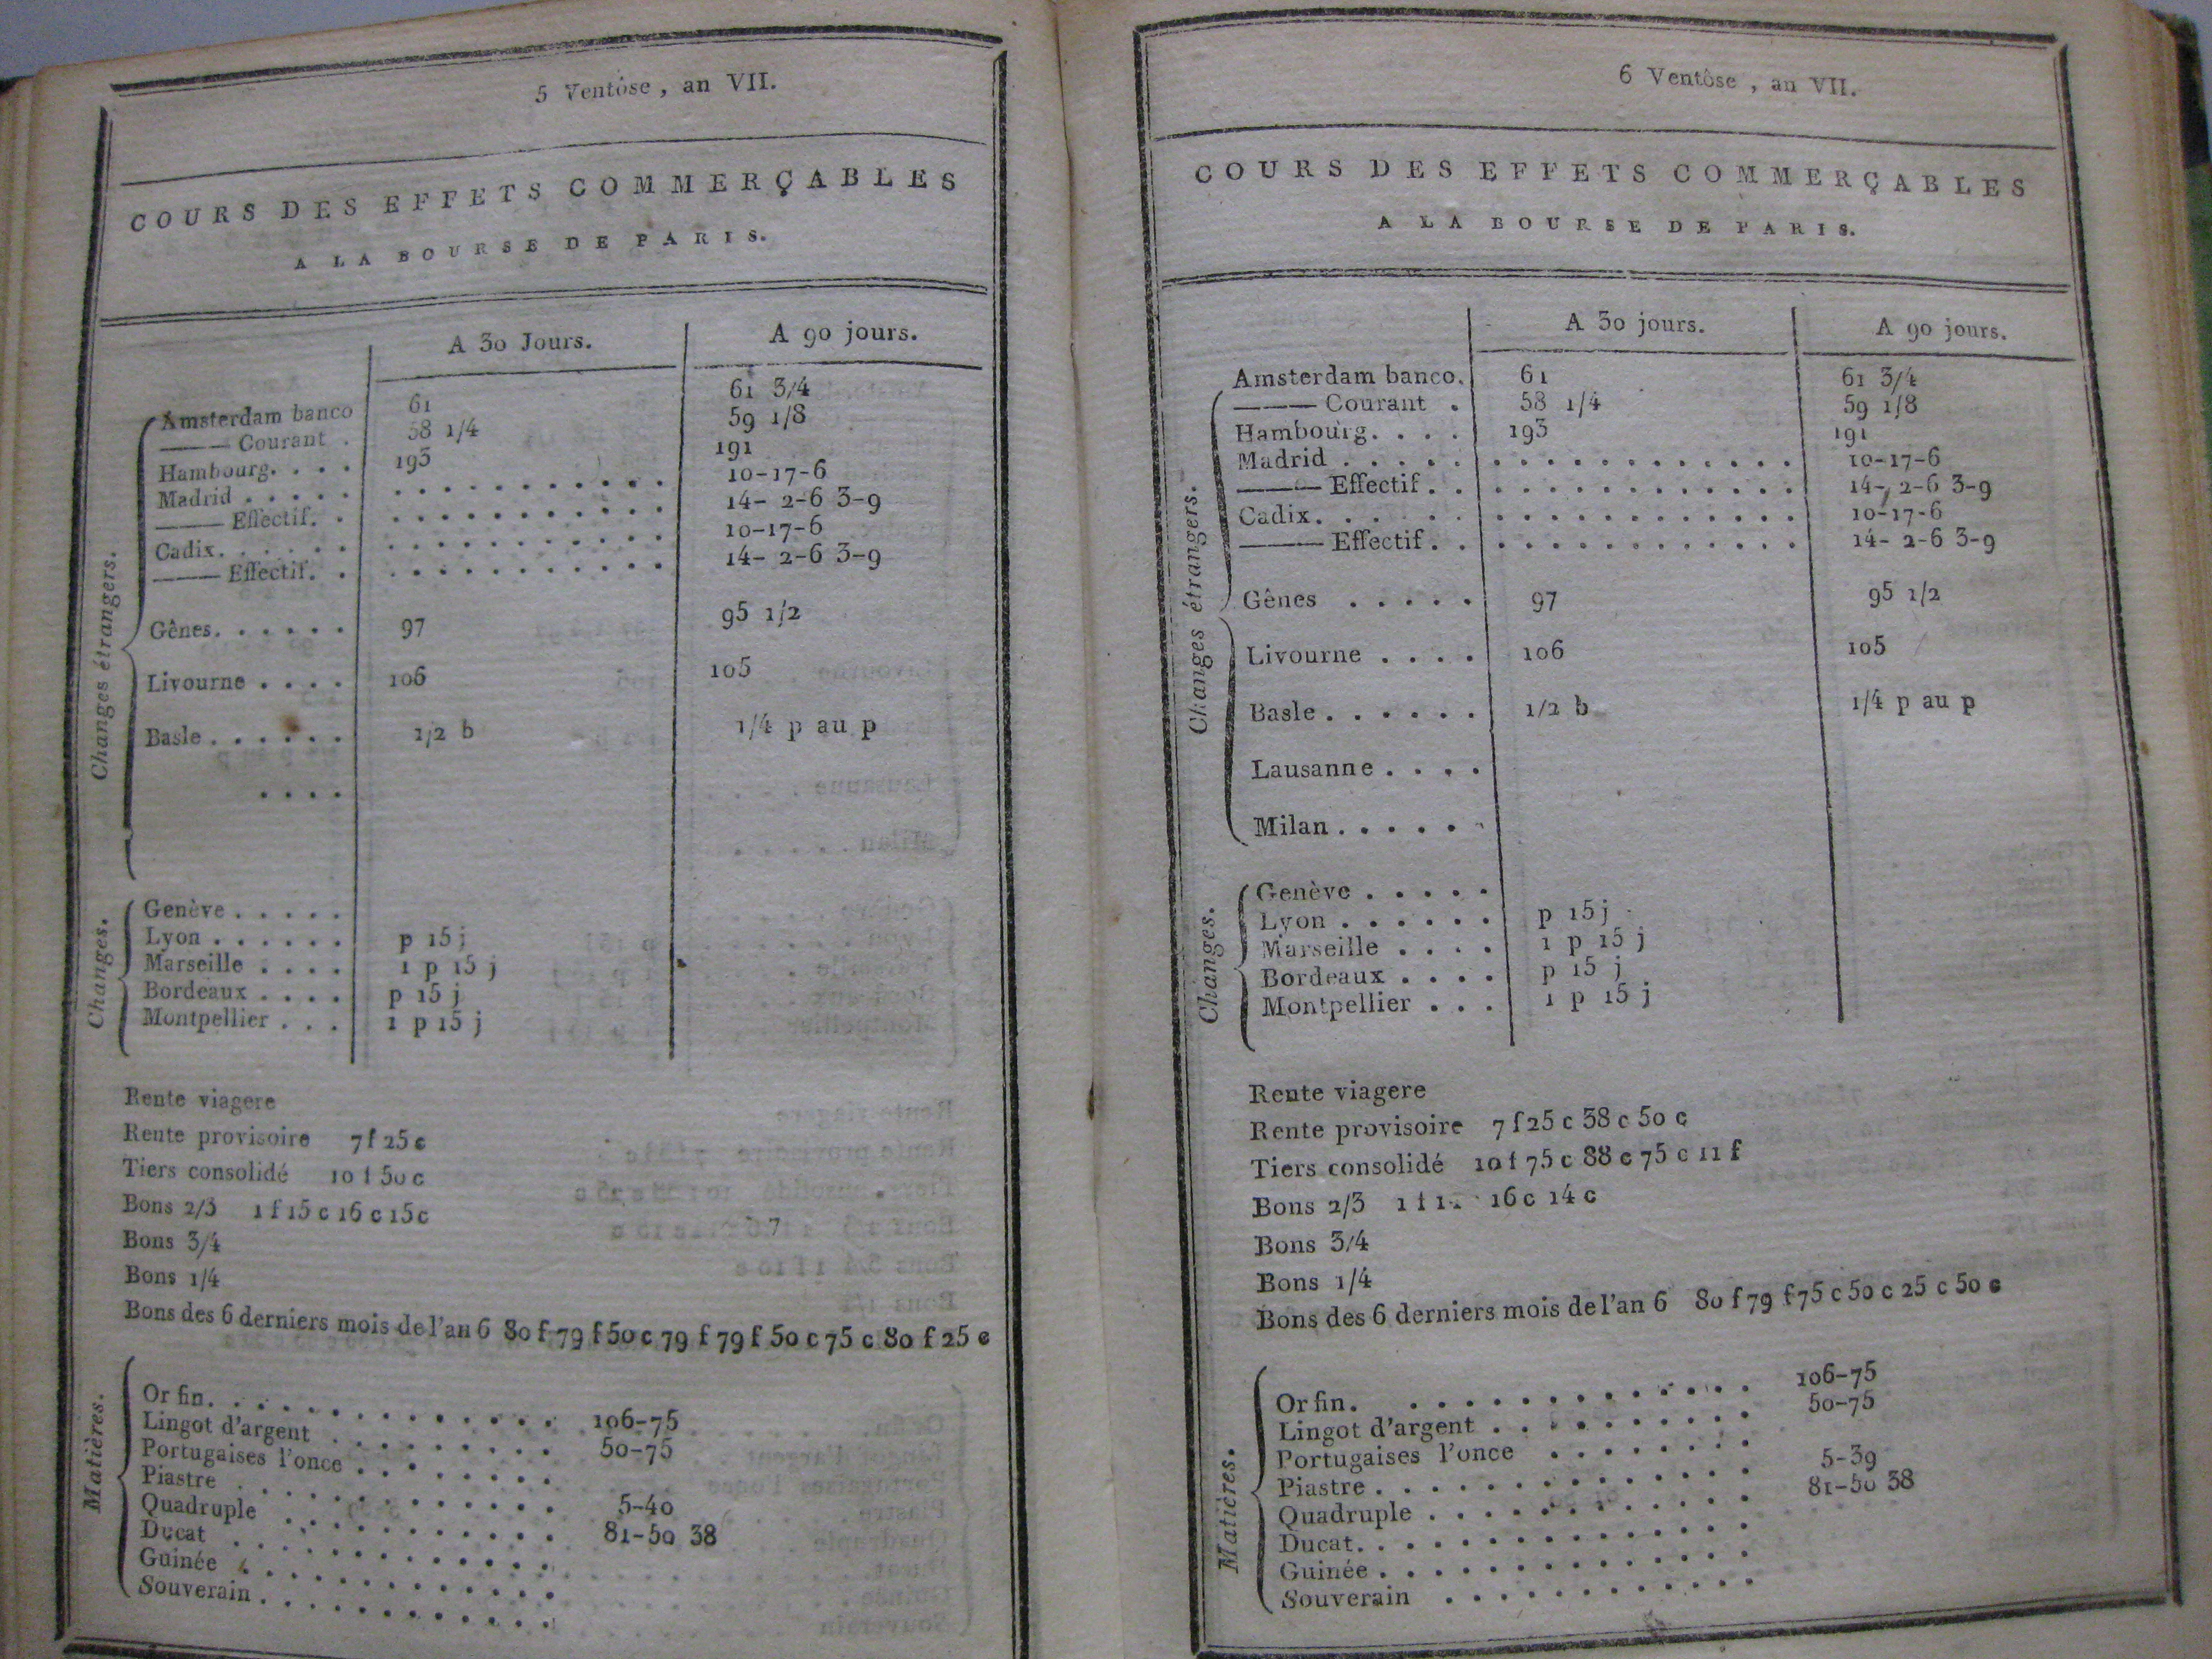 5 Ventôse, an VII.
COURS DES EFFETS COMMERÇABLES
A LA BOURSE DE PARIS.
A 30 Jours. A 90 jours.
Changes étrangers.
Amsterdam banco 61 61 3/4
——— Courant . 58 1/4 59 1/8
Hambourg. . . . 193 191
Madrid . . . . . . . . . . . . . . . . 10-17-6
——— Effectif. . . . . . . . . . . . . 14- 2-6 3-9
Cadix. . . . . . . . . . . . . . . . . 10-17-6
——— Effectif. . . . . . . . . . . . . 14- 2-6 3-9
Gênes. . . . . . 97 95 1/2
Livourne . . . . 106 105
Basle . . . . . . 1/2 b 1/4 p au p
. . . .
Changes.
Genève . . . . .
Lyon . . . . . . p 15 j
Marseille . . . . 1 p 15 j
Bordeaux . . . . p 15 j
Montpellier . . . 1 p 15 j
Rente viagere
Rente provisoire 7 f 25 c
Tiers consolidé 10 f 50 c
Bons 2/3 1 f 15 c 16 c 15 c
Bons 3/4
Bons 1/4
Bons des 6 derniers mois de l'an 6 80 f 79 f 50 c 79 f 79 f 50 c 75 c 80 f 25 c
Matières.
Or fin. . . . . . . . . . . . . . 106-75
Lingot d'argent . . . . . . . . . 50-75
Portugaises l'once . . . . . . . .
Piastre . . . . . . . . . . . . . 5-40
Quadruple . . . . . . . . . . . . 81-50 38
Ducat . . . . . . . . . . . . . .
Guinée . . . . . . . . . . . . . .
Souverain . . . . . . . . . . . .
6 Ventôse, an VII.
COURS DES EFFETS COMMERÇABLES
A LA BOURSE DE PARIS.
A 30 jours. A 90 jours.
Changes étrangers.
Amsterdam banco. 61 61 3/4
——— Courant . 58 1/4 59 1/8
Hambourg. . . . 193 191
Madrid . . . . . . . . . . . . . . . . 10-17-6
——— Effectif. . . . . . . . . . . . . 14- 2-6 3-9
Cadix. . . . . . . . . . . . . . . . . 10-17-6
——— Effectif. . . . . . . . . . . . . 14- 2-6 3-9
Gênes . . . . . 97 95 1/2
Livourne . . . . 106 105
Basle . . . . . . 1/2 b 1/4 p au p
Lausanne . . . .
Milan . . . . . .
Changes.
Genève . . . . .
Lyon . . . . . . p 15 j
Marseille . . . . 1 p 15 j
Bordeaux . . . . p 15 j
Montpellier . . . 1 p 15 j
Rente viagere
Rente provisoire 7 f 25 c 38 c 50 c
Tiers consolidé 10 f 75 c 88 c 75 c 11 f
Bons 2/3 1 f 16 c 14 c
Bons 3/4
Bons 1/4
Bons des 6 derniers mois de l'an 6 80 f 79 f 75 c 50 c 25 c 50 c
Matières.
Or fin. . . . . . . . . . . . . . 106-75
Lingot d'argent . . . . . . . . . 50-75
Portugaises l'once . . . . . . . .
Piastre . . . . . . . . . . . . . 5-39
Quadruple . . . . . . . . . . . . 81-50 38
Ducat. . . . . . . . . . . . . . .
Guinée . . . . . . . . . . . . . .
Souverain . . . . . . . . . . . .